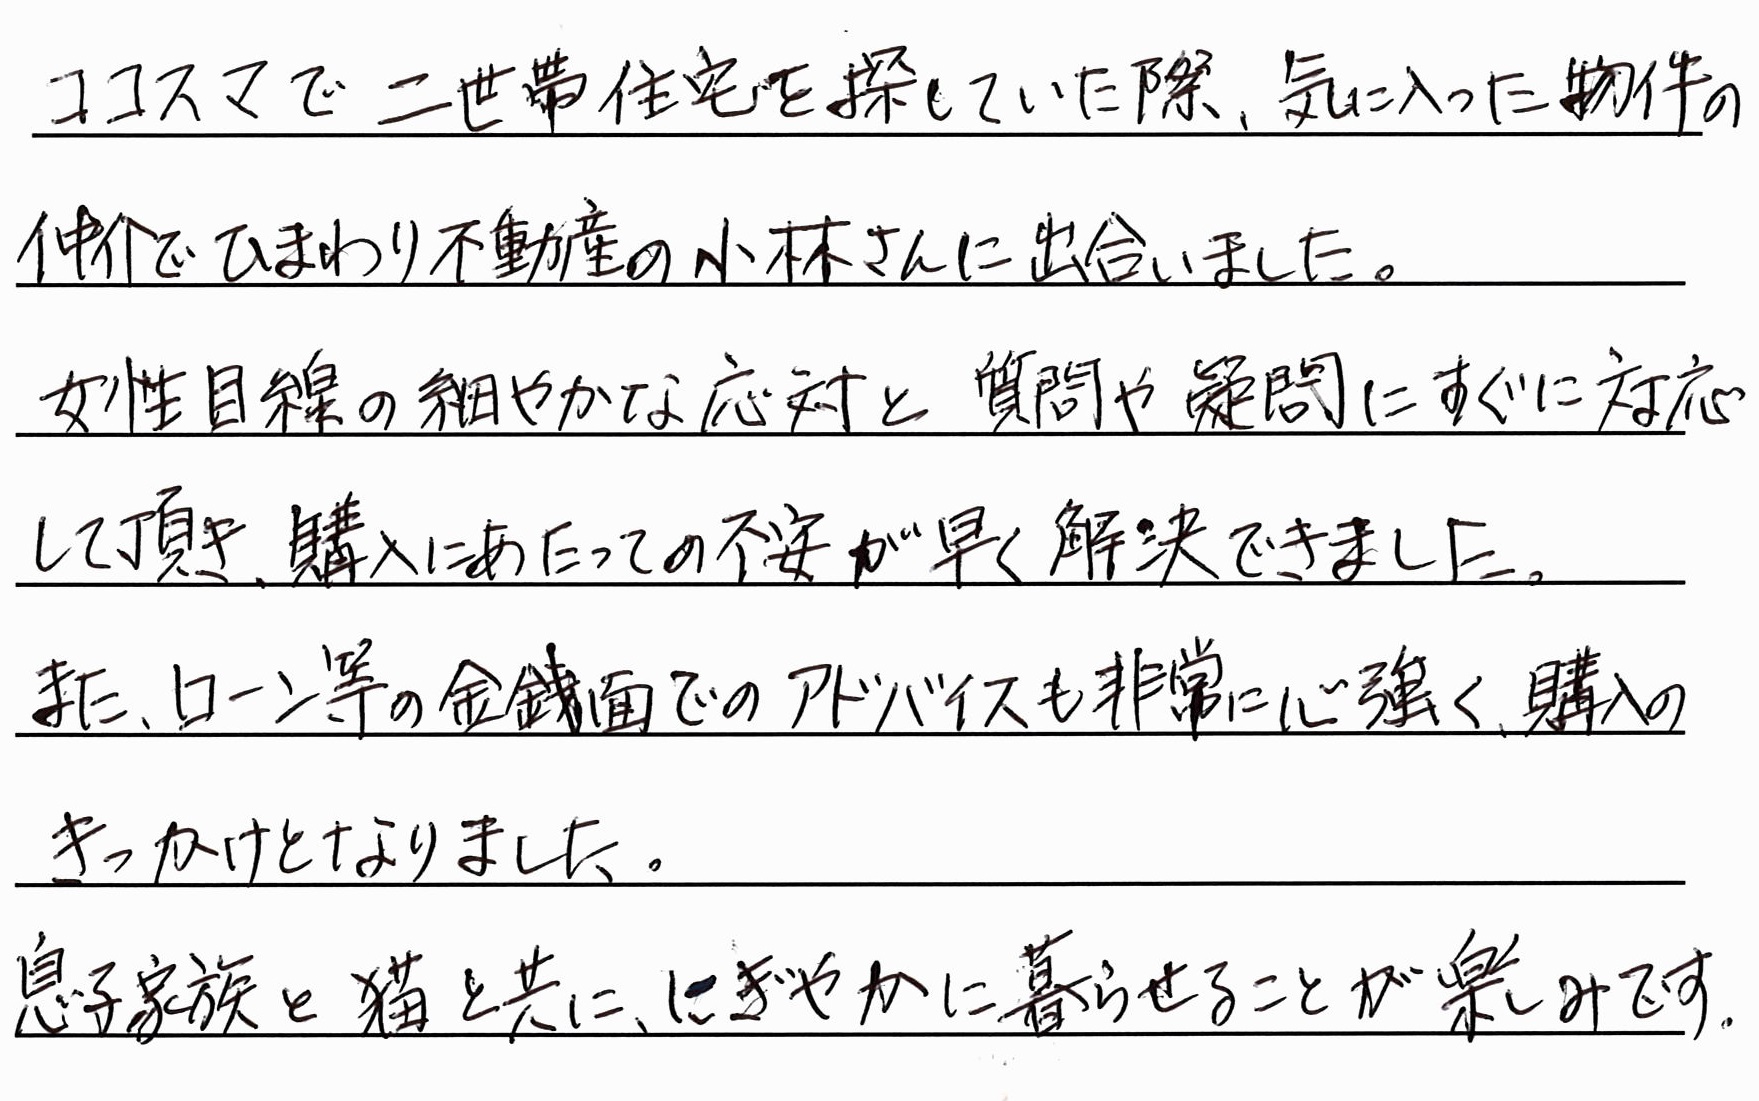 ココスマで二世帯住宅を探していた際、気に入った物件の
仲介でひまわり不動産の小林さんに出合いました。
女性目線の細やかな応対と質問や疑問にすぐに対応
して頂き、購入にあたっての不安が早く解決できました。
また、ローン等の金銭面でのアドバイスも非常に心強く、購入の
きっかけとなりました。
息子家族と猫と共に、にぎやかに暮らせることが楽しみです。